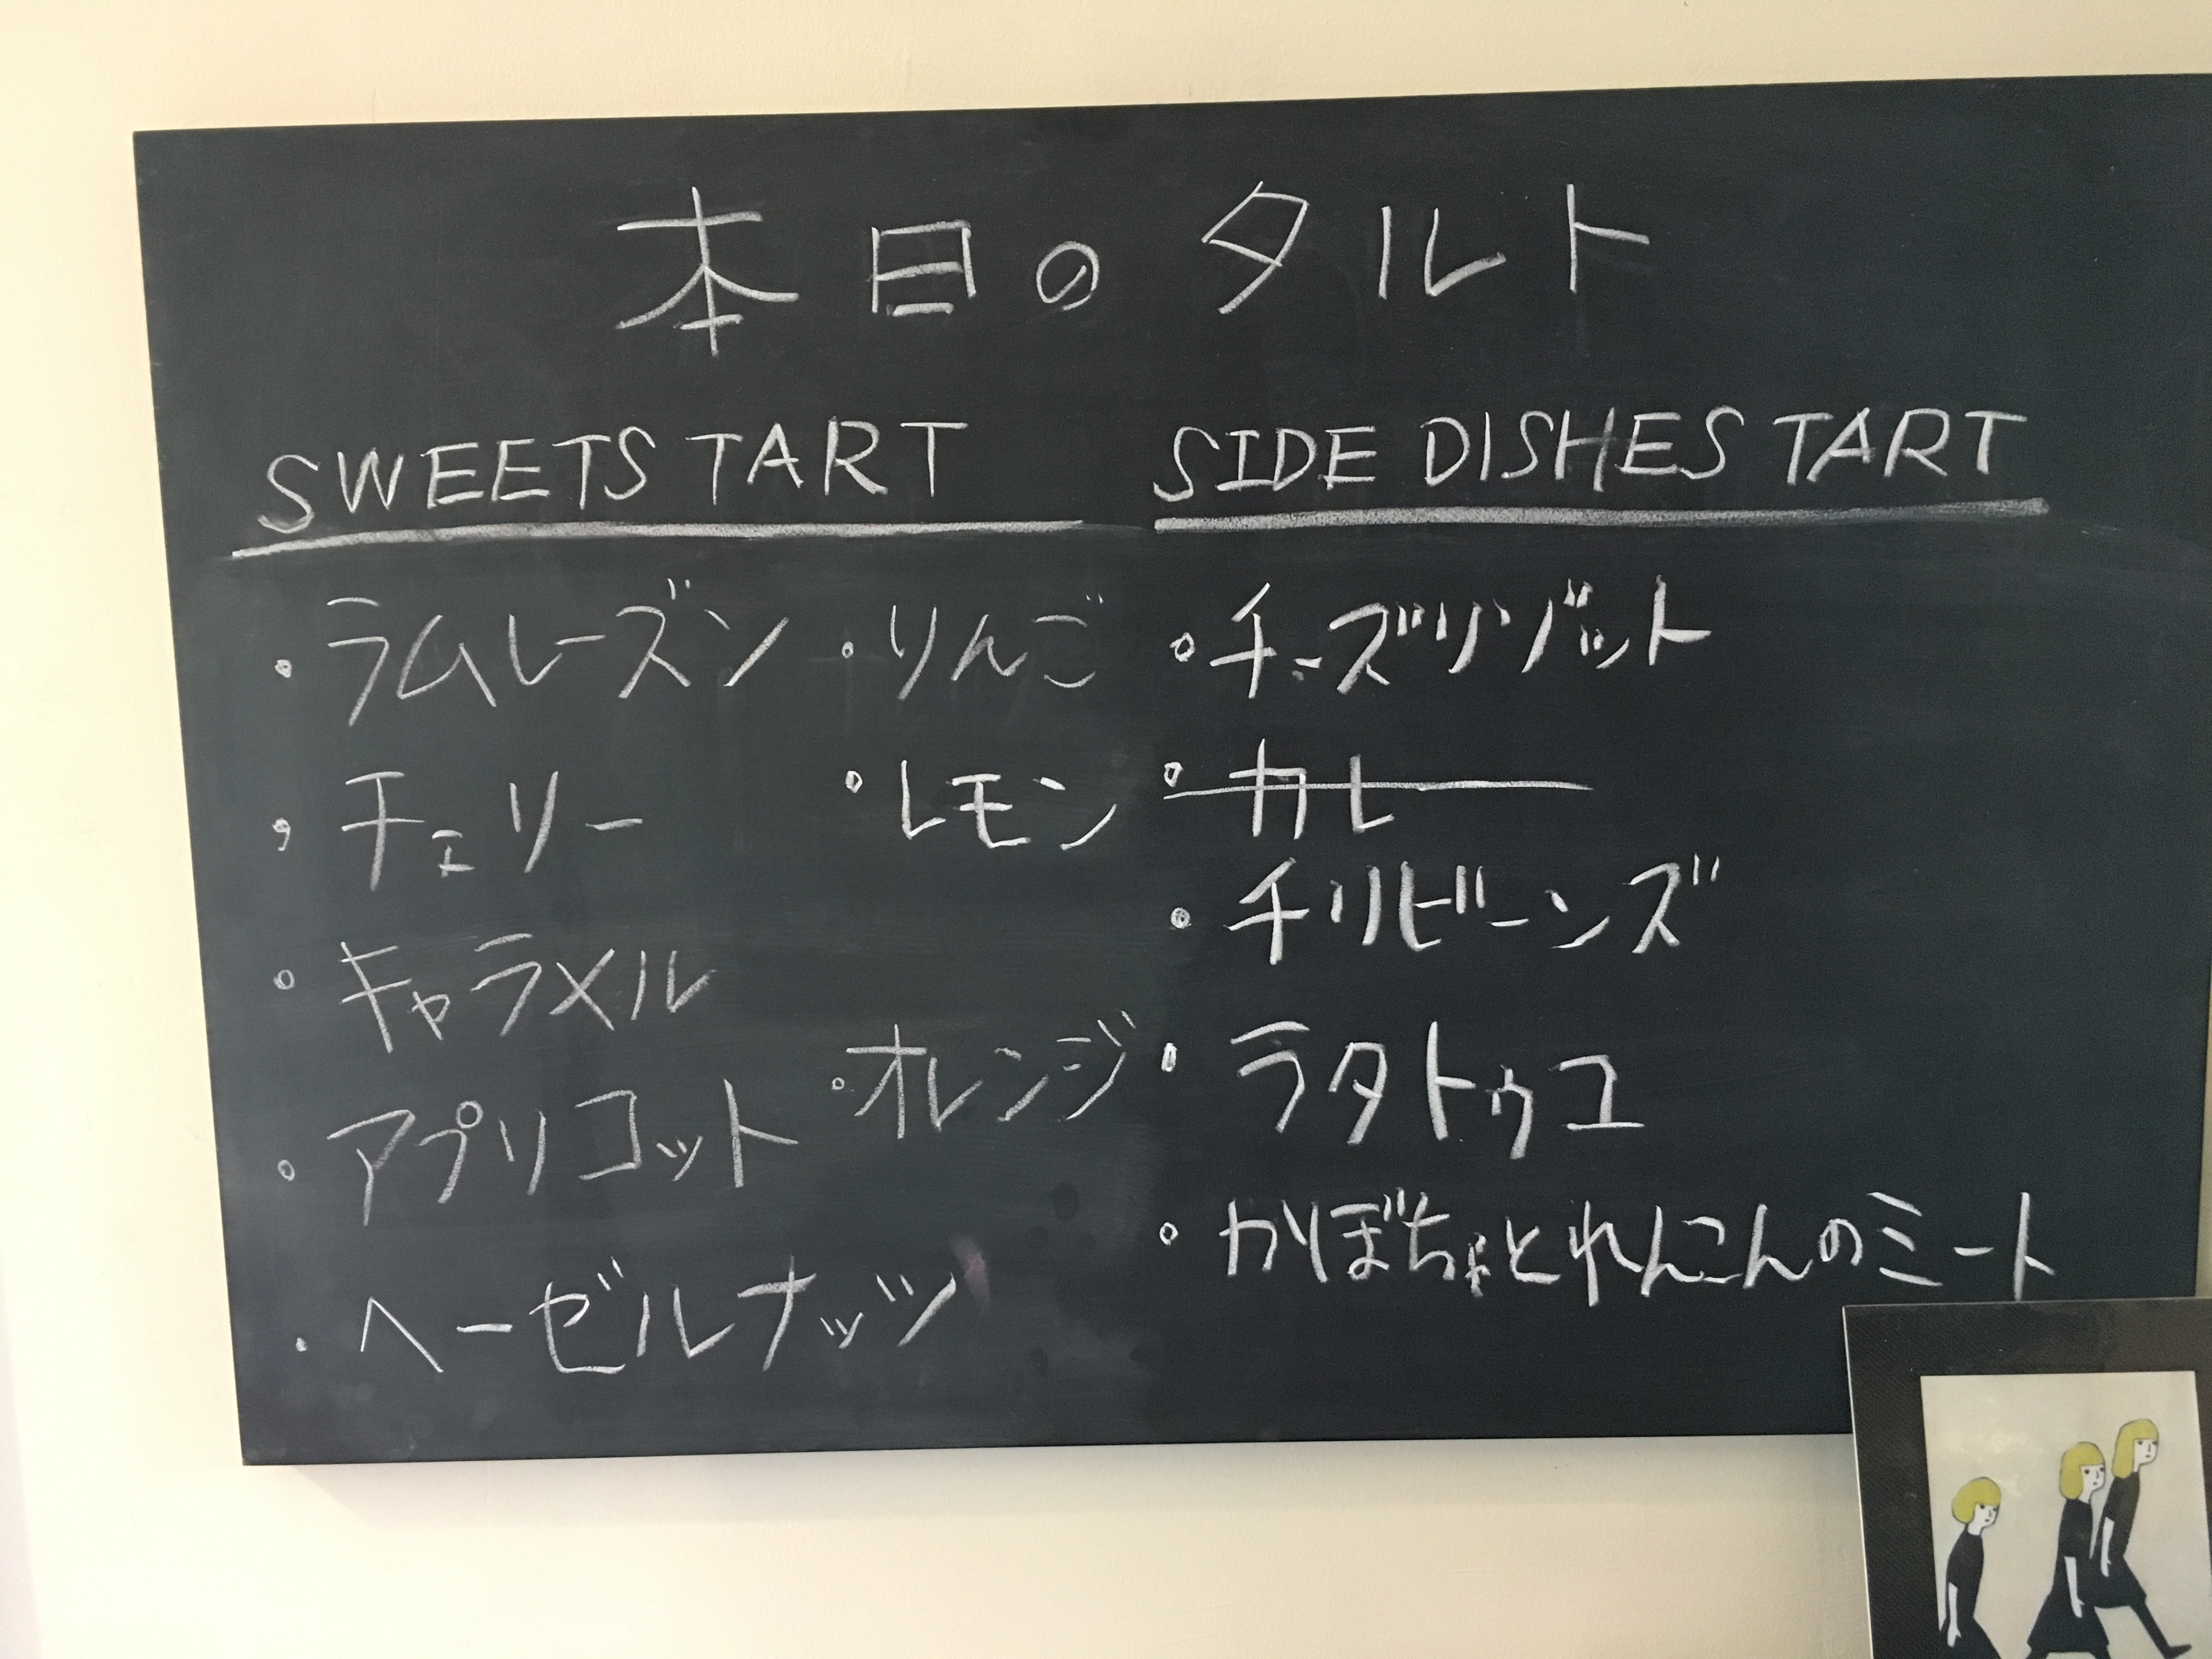 本日のタルト
SWEETS TART
・ラムレーズン
・りんご
・チェリー
・レモン
・キャラメル
・オレンジ
・アプリコット
・ヘーゼルナッツ
SIDE DISHES TART
・チーズリゾット
・カレー
・チリビーンズ
・ラタトゥユ
・かぼちゃとれんこんのミート